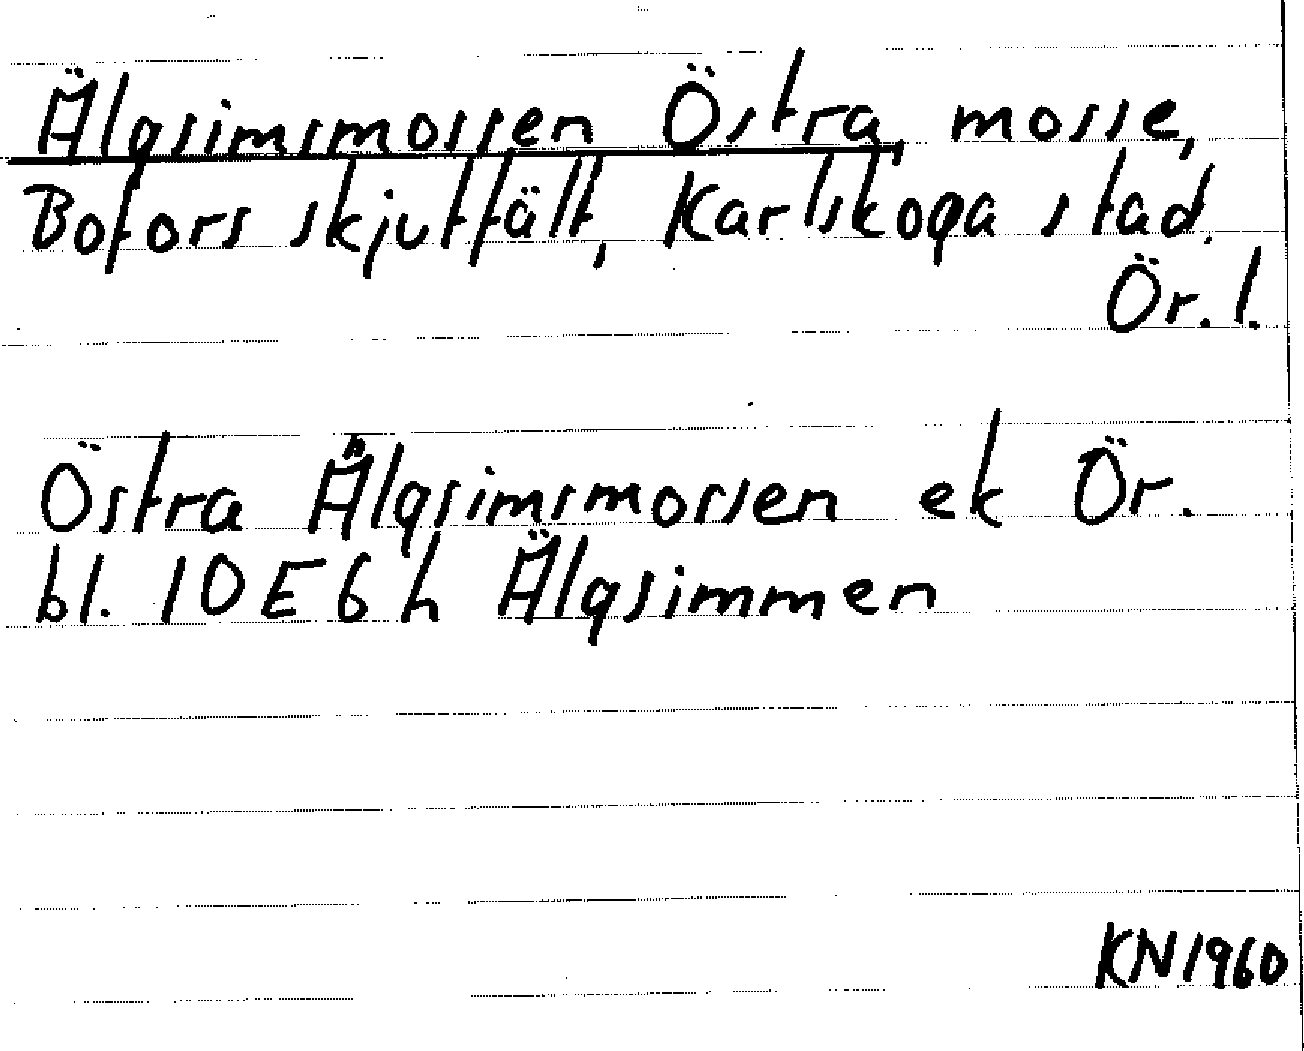 Älgsimsmossen Östra, mosse,
Bofors skjutfält, Karlskoga stad.
Ör. l.
Östra Älgsimsmossen ek Ör.
bl. 10E6h Älgsimmen
KN1960